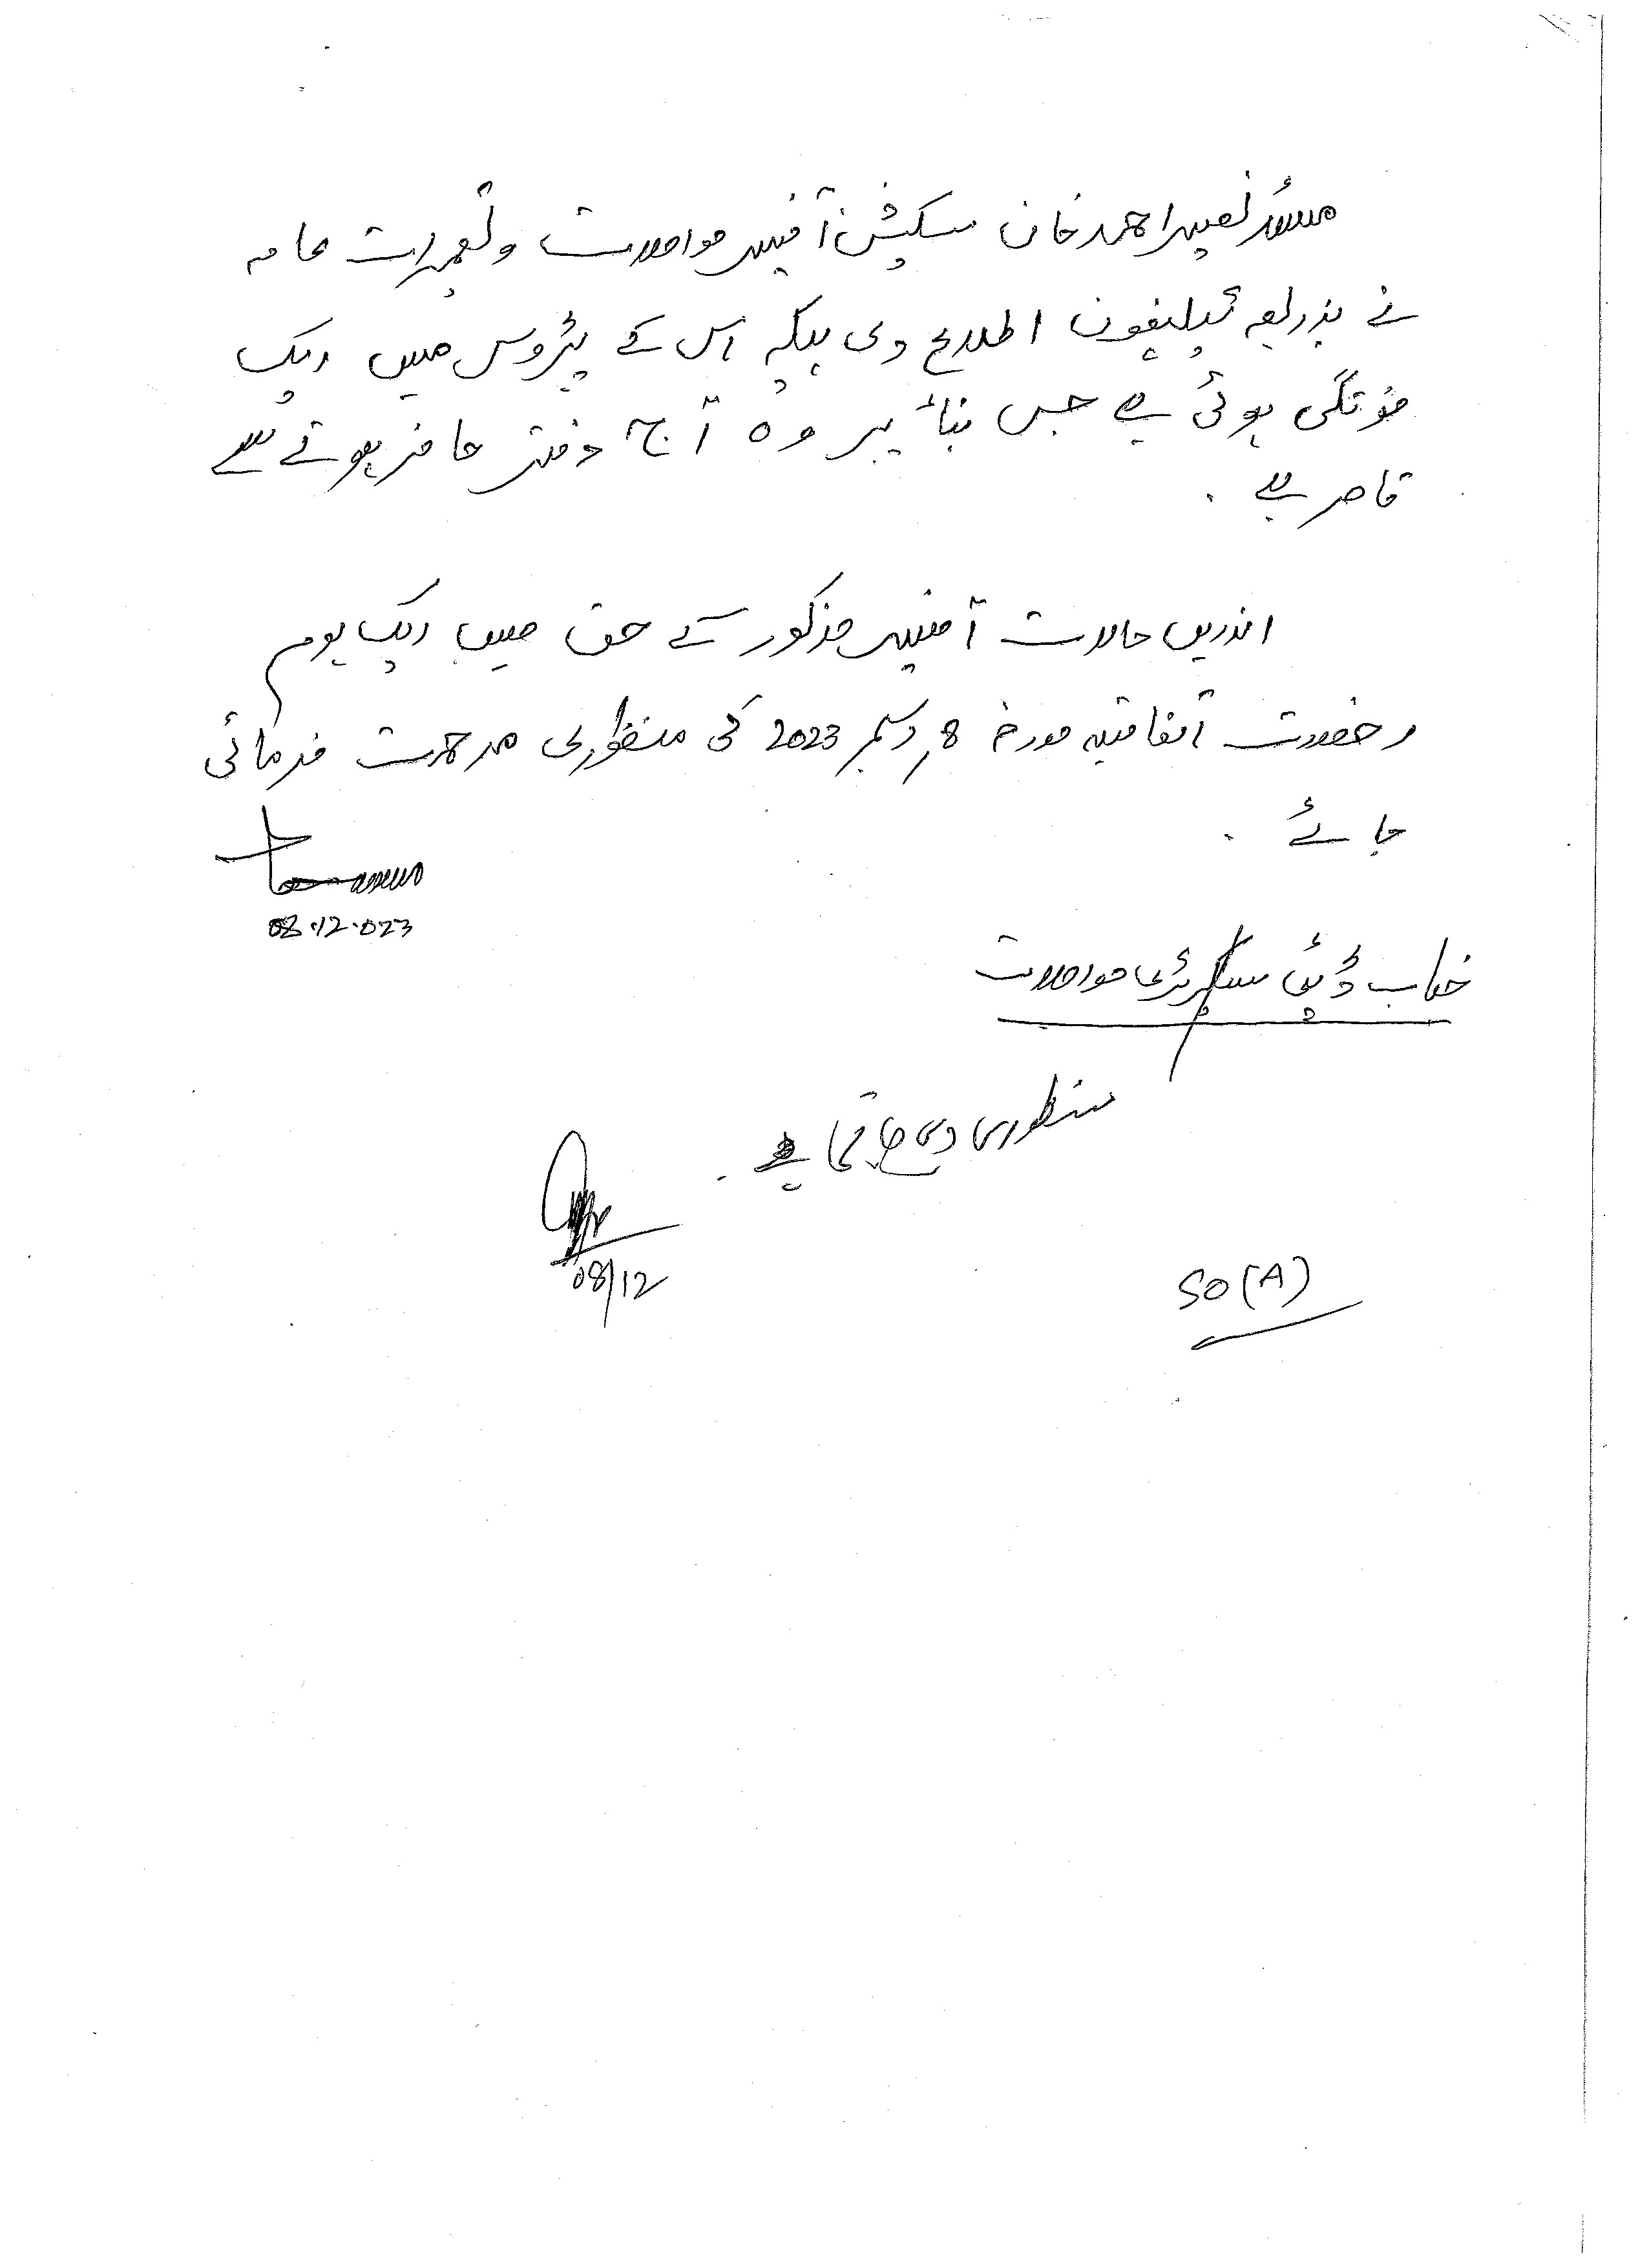 مسٹر نصیر احمد خان سیکشن آفیسر مواصلات و تعمیرات عامہ
نے بذریعہ ٹیلیفون اطلاع دی ہیکہ اس کے پڑوس میں ایک
فوتگی ہوئی ہے جس بناء پر وہ آج دفتر حاضر ہونے سے
قاصر ہے .
اندریں حالات آفیسر مذکور کے حق میں ایک یوم
رخصت اتفاقیہ مورخہ 8 دسمبر 2023 کی منظوری مرحمت فرمائی
جائے .
08.12.023
جناب ڈپٹی سیکرٹری مواصلات
منظوری دی جاتی ہے .
08/12
SO (A)